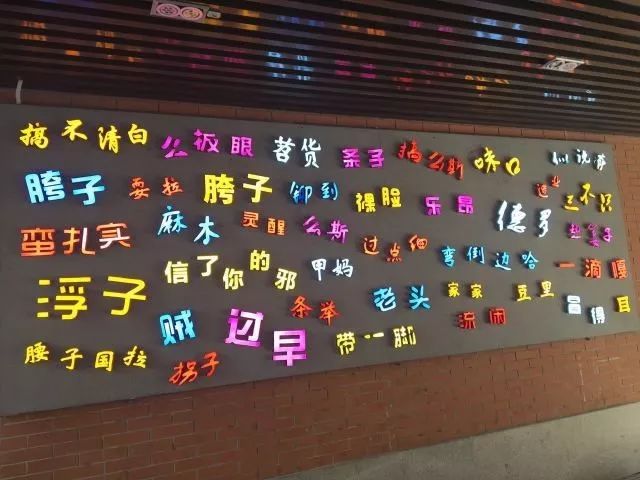 搞不清白
么板眼
苕货
条子
搞么斯
咵口
胯子
耍拉
胯子
铆到
裸脸
乐昂
德多
蛮扎实
麻木
灵醒
么斯
过点细
弯倒边哈
一滴嘎
浮子
信了你的邪
甲妈
条举
老头
家家
豆里
昌得耳
贼
过早
带一脚
流闹
腰子国拉
拐子